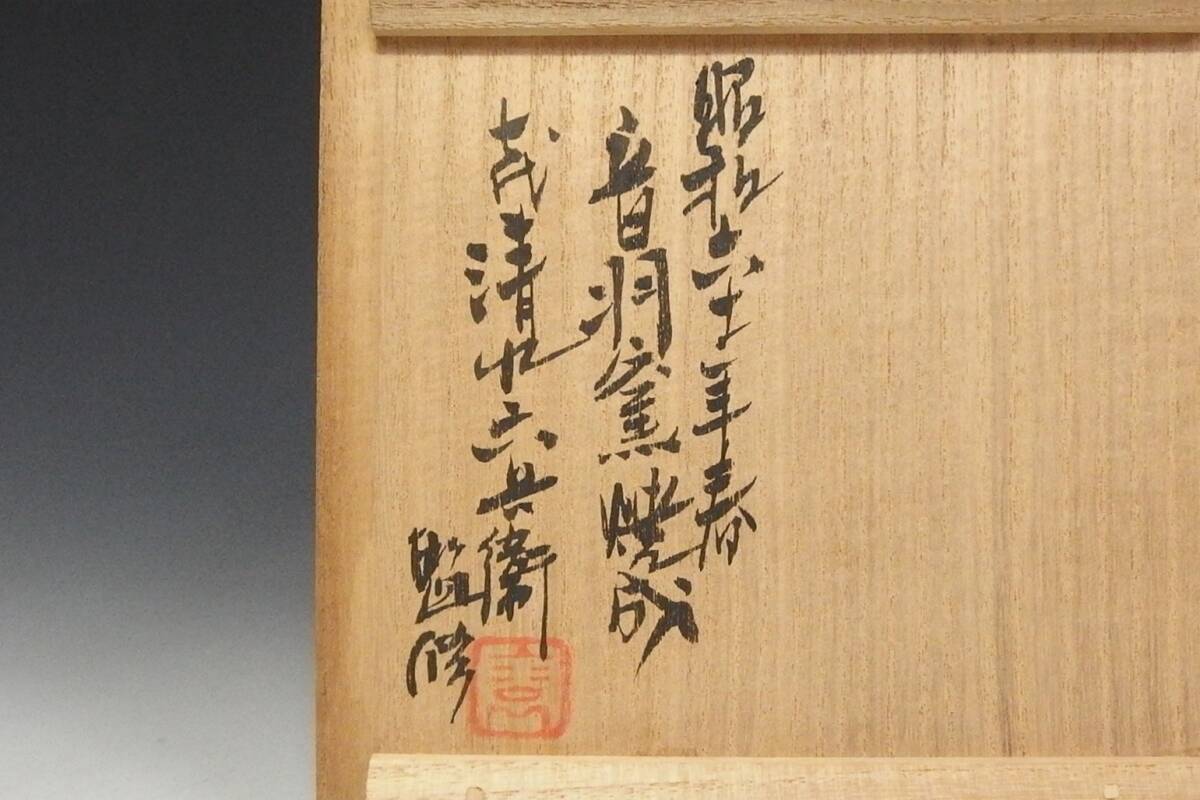 昭和六十年春
音羽窯焼成
七代清水六兵衛
監修